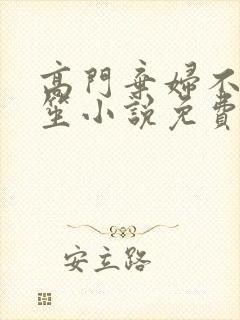 高門棄婦不
笙小說免費
安立路